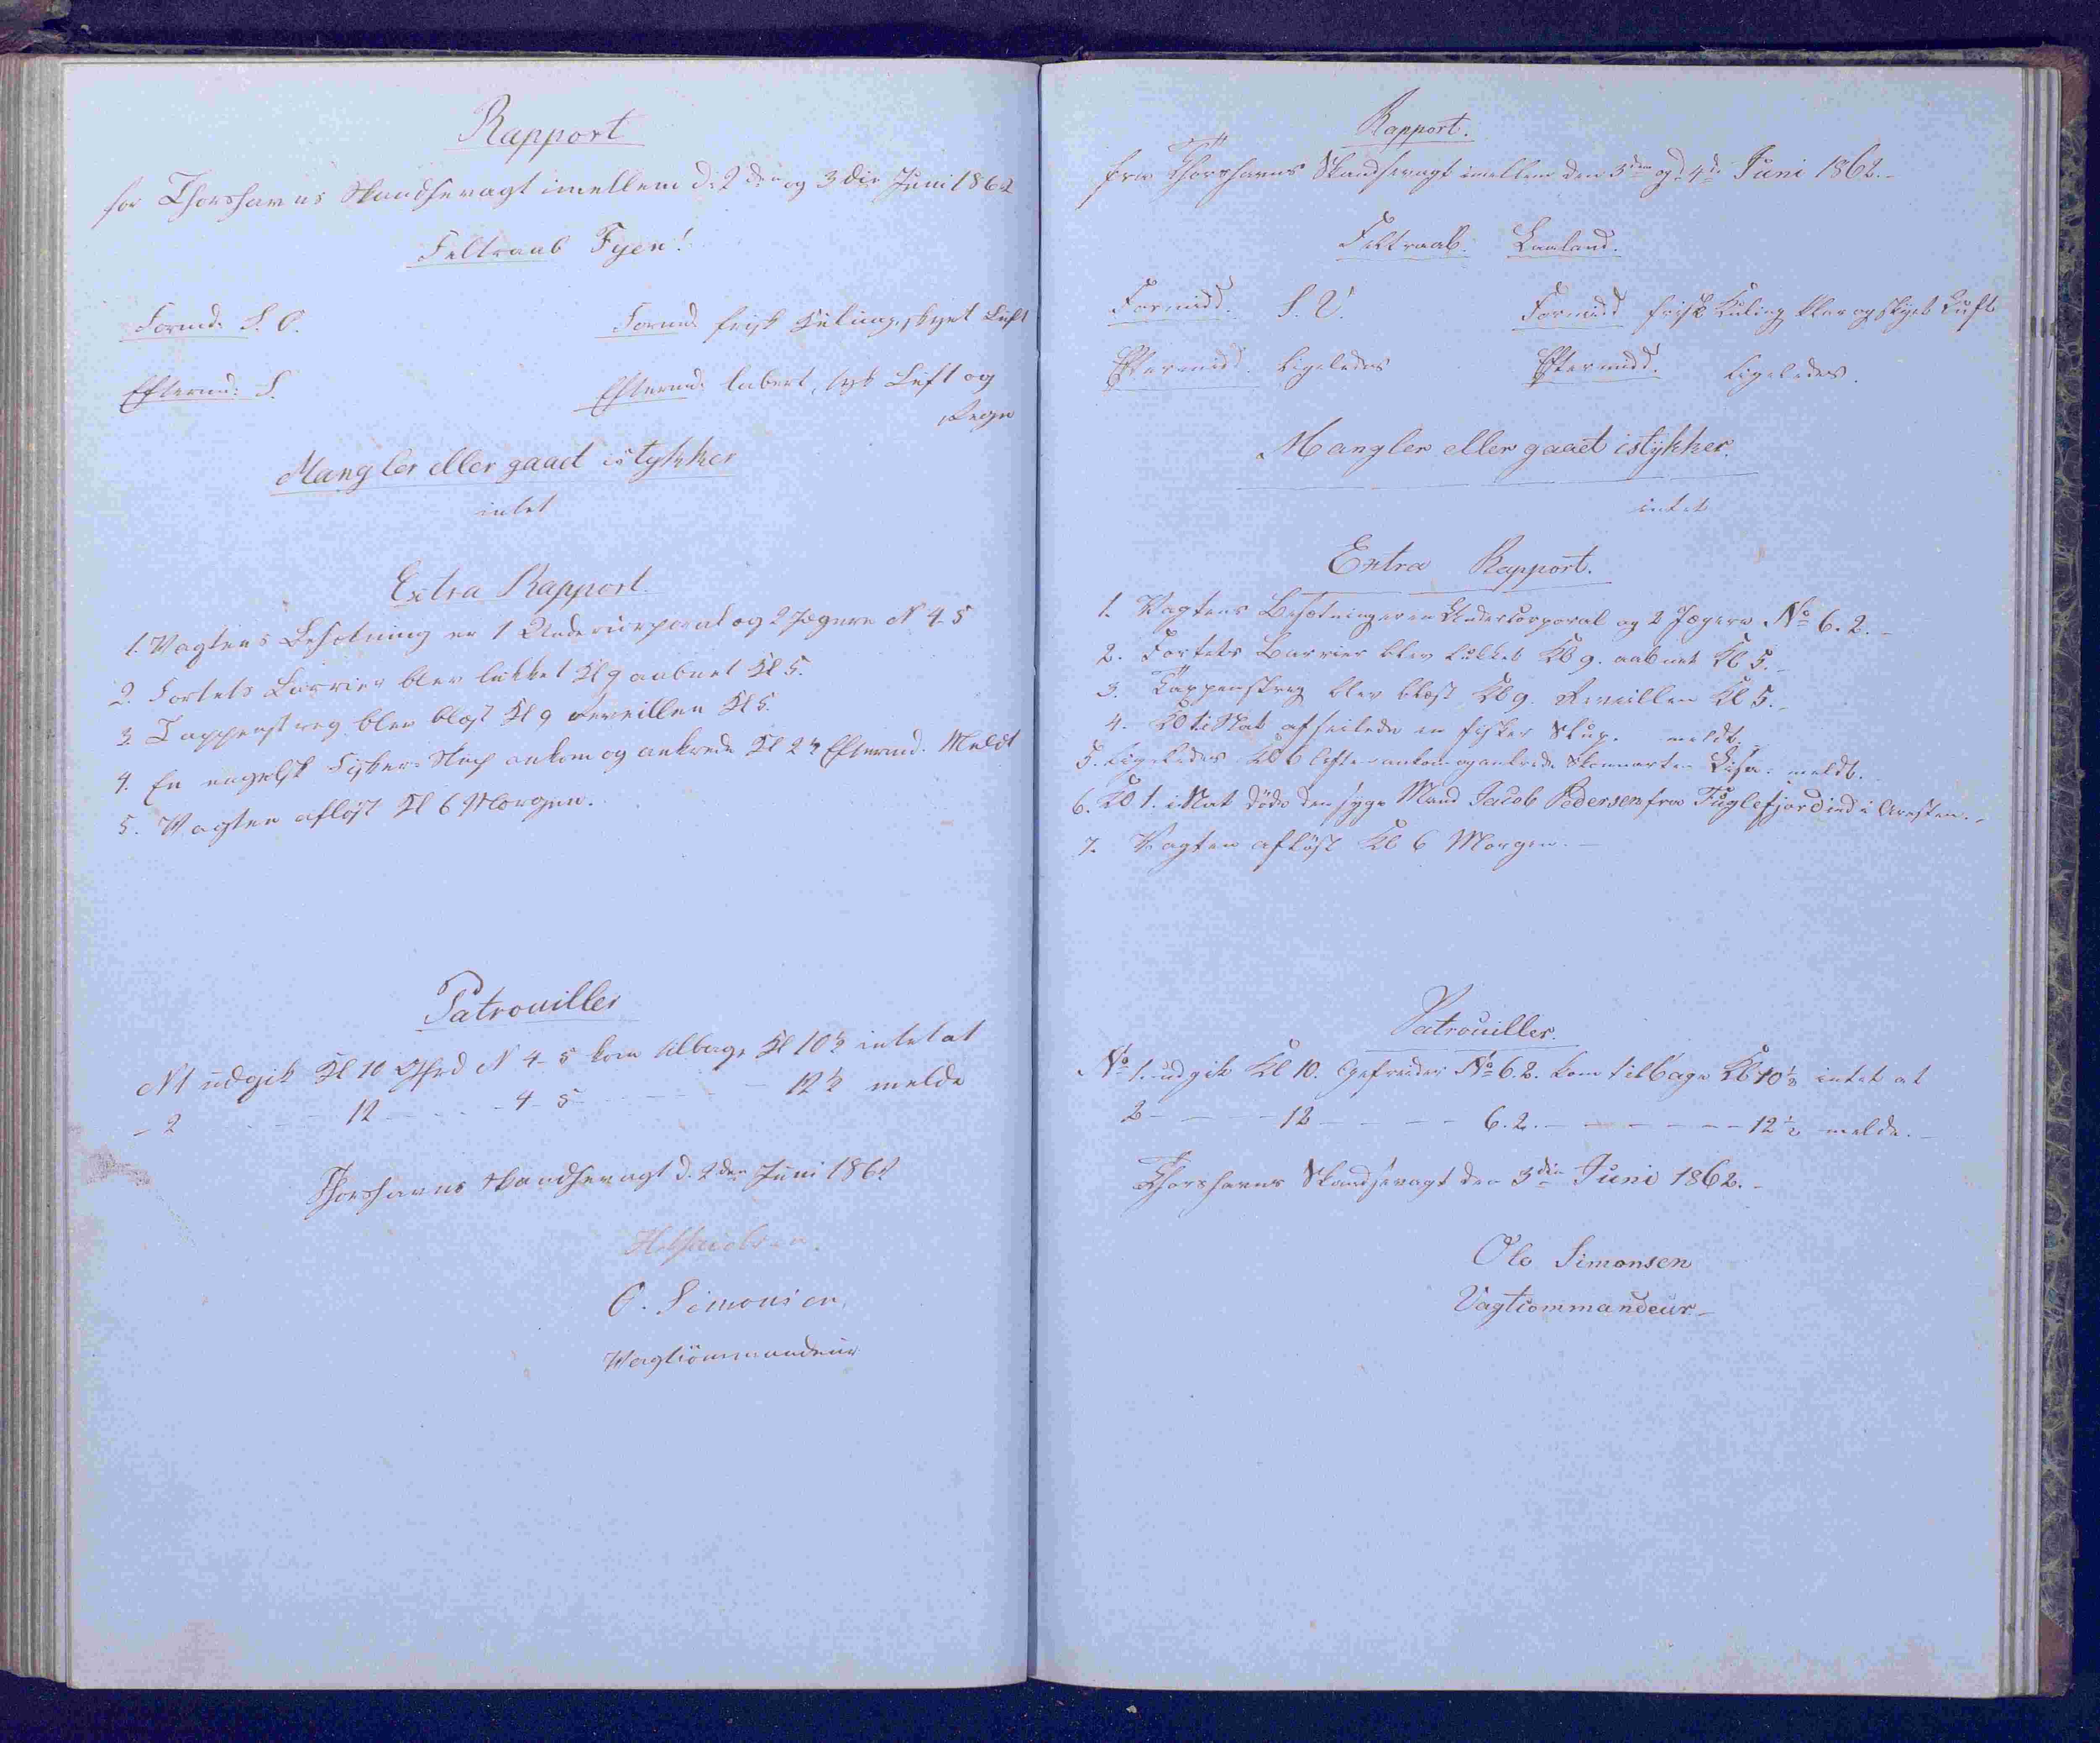 Rapport
for Thorshavns Skandsevagt imellem d: 2den og 3die Juni 1862
Feltraab Fyen!
Formd. S. O.
Formd. frisk Kuling, skyet Luft
Eftermd: S.
Eftermd. labert, tyk Luft og
Regn
Mangler eller gaaet istykker
intet
Extra Rapport.
1. Vagtens Besætning er 1 Undercorporal og 2 Jægere N 4-5
2. Fortets Barrier blev lukket Kl 9 aabnet Kl 5.
3. Tappenstreg blev blæst Kl 9 Reveillen Kl 5.
4. En engelsk Fisker-Slup ankom og ankrede Kl 2½ Eftermd. Meldt
5. Vagten afløst Kl 6 Morgen.
Patrouiller
N 1 udgik Kl 10 Gfrd N 4-5 kom tilbage Kl 10½ intet at
- 2 - - 12 - - - - 4-5 - - - - - 12½ melde
Thorshavns Skandsevagt d. 2den Juni 1862
O. Simonsen
Vagtcommandeur
Rapport.
fra Thorshavns Skandsevagt imellem den 3die og 4de Juni 1862.-
Feltraab. Laaland.
Formidd. S. V.
Formidd frisk Kuling klar og skyet Luft
Eftermidd. ligeledes
Eftermidd. ligeledes.
Mangler eller gaaet istykker.
intet
Extra Rapport.
1. Vagtens Besætning er en Undercorporal og 2 Jægere No 6. 2.-
2. Fortets Barrier blev lukket Kl 9. aabnet Kl 5.-
3. Tappenstreg blev blæst Kl 9. Reveillen Kl 5.-
4. Kl ti Nat afseilede en fisker Slup. meldt.
5. Ligeledes Kl 6 Efter ankom og ankrede Skonnerten Disa. meldt.-
6. Kl 1. i Nat døde den syge Mand Jacob Pedersen fra Fuglefjord ind i Aresten.-
7. Vagten afløst Kl 6 Morgen.-
Patrouiller.
No 1. udgik Kl 10. Gefreider No 6. 2. kom tilbage Kl 10½ intet at
2 - - - - 12 - - - - 6. 2. - - - - - - 12½ melde.-
Thorshavns Skandsevagt den 3die Juni 1862.-
Ole Simonsen
Vagtcommandeur-